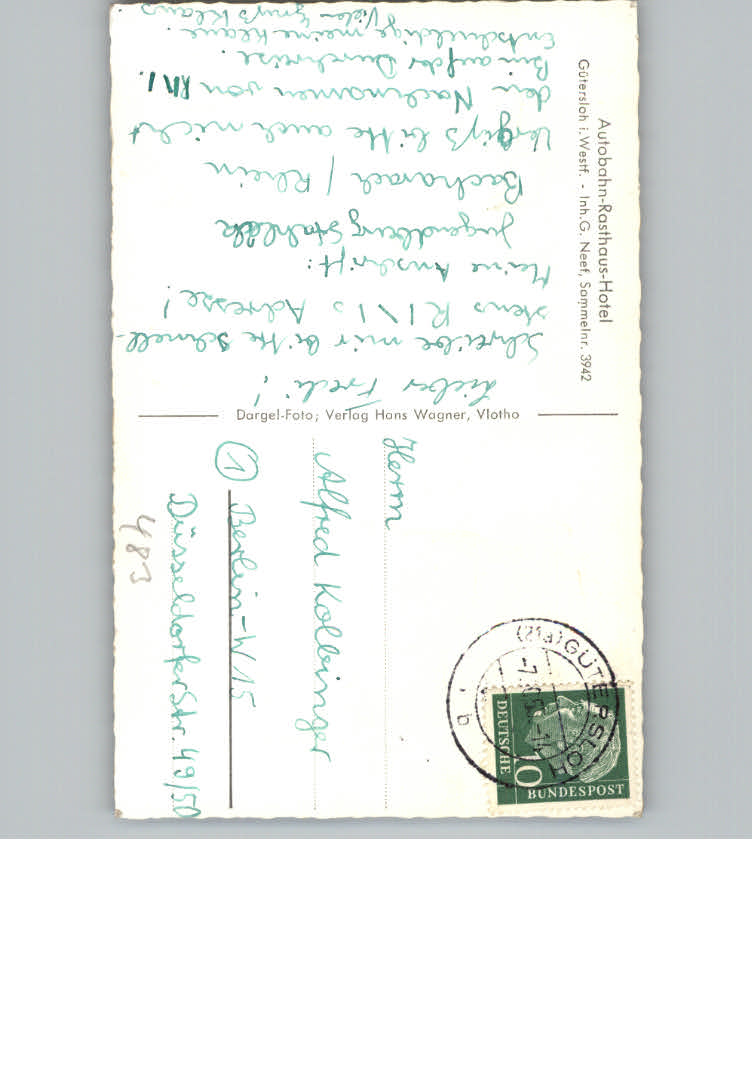 Autobahn-Rasthaus-Hotel
Gütersloh i. Westf. - Inh. G. Neef, Sammelnr. 3942
Lieber Fredi!
Schreibe mir bitte schnell-
stens RINIS Adresse!
Meine Anschrift:
Jugendburg Stahleck
Bacharach / Rhein
Vergiß bitte auch nicht
den Nachnamen von RINI.
Bin auf der Durchreise.
Entschuldige meine Klaue.
Vielen Gruß Klaus
Dargel-Foto; Verlag Hans Wagner, Vlotho
Herrn
Alfred Kolbinger
① Berlin-W 15
Düsseldorfer Str. 49/50
483
(21a) GÜTERSLOH
b
DEUTSCHE
BUNDESPOST